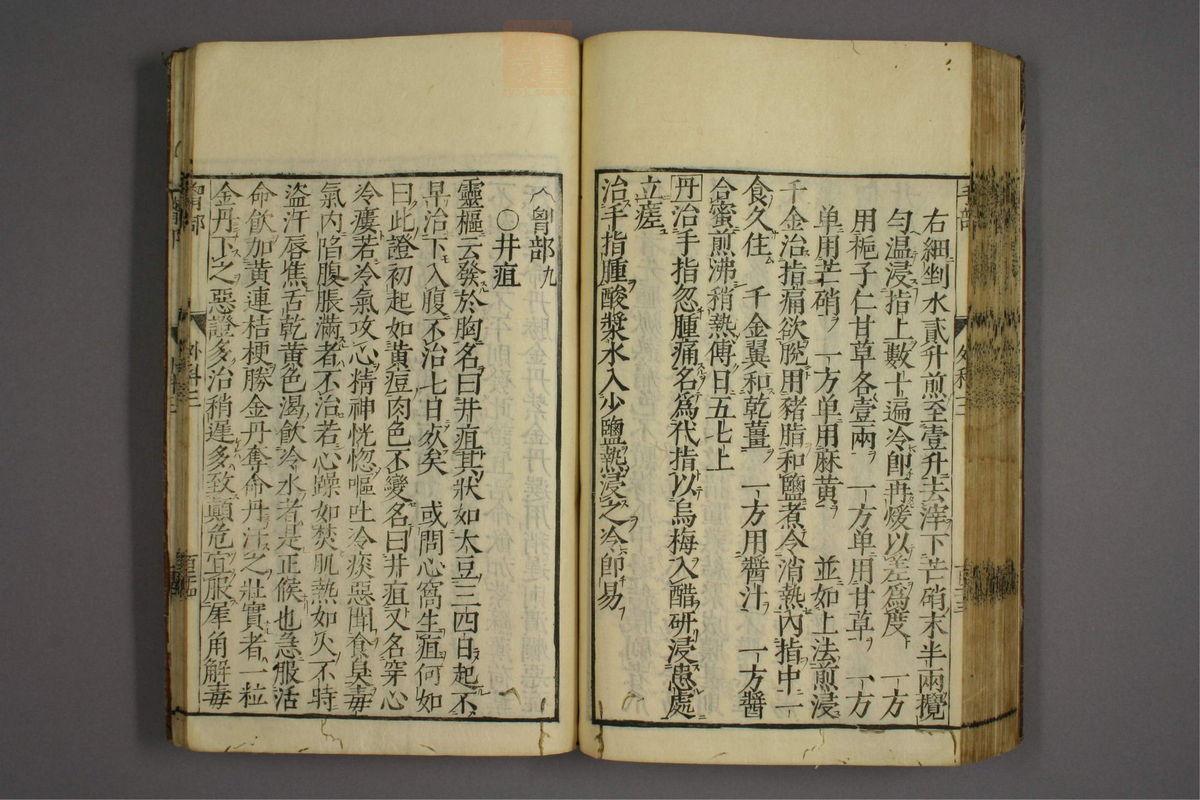 右細剉水貳升煎至壹升去滓下芒硝末半兩攪
勻溫浸指上數十遍冷卽再煖以差爲度　一方
用梔子仁甘草各壹兩　一方单用甘草　一方
单用芒硝　一方单用麻黄　　並如上法煎浸
千金治指痛欲脫用豬脂和鹽煮令消熱內指中一
食久住　千金翼和乾薑　一方用醬汁　一方醬
合蜜煎沸稍熱傅日五七上
丹治手指忽腫痛名爲代指以烏梅入醋研浸患處
立瘥
治手指腫酸漿水入少鹽熱浸之冷卽易
胷部九
〇井疽
靈樞云發於胸名曰井疽其狀如大豆三四日起不
早治下入腹不治七日死矣　或問心窩生疽何如
曰此證初起如黄痘肉色不變名曰井疽又名穿心
冷瘻若冷氣攻心精神恍惚嘔吐冷痰惡聞食臭毒
氣內陷腹脹滿者不治若心躁如焚肌熱如火不時
盜汗唇焦舌乾黄色渴飲冷水者是正候也急服活
命飲加黄連桔梗勝金丹奪命丹汗之壯實者一粒
金丹下之惡證多治稍遲多致顚危宜服犀角解毒